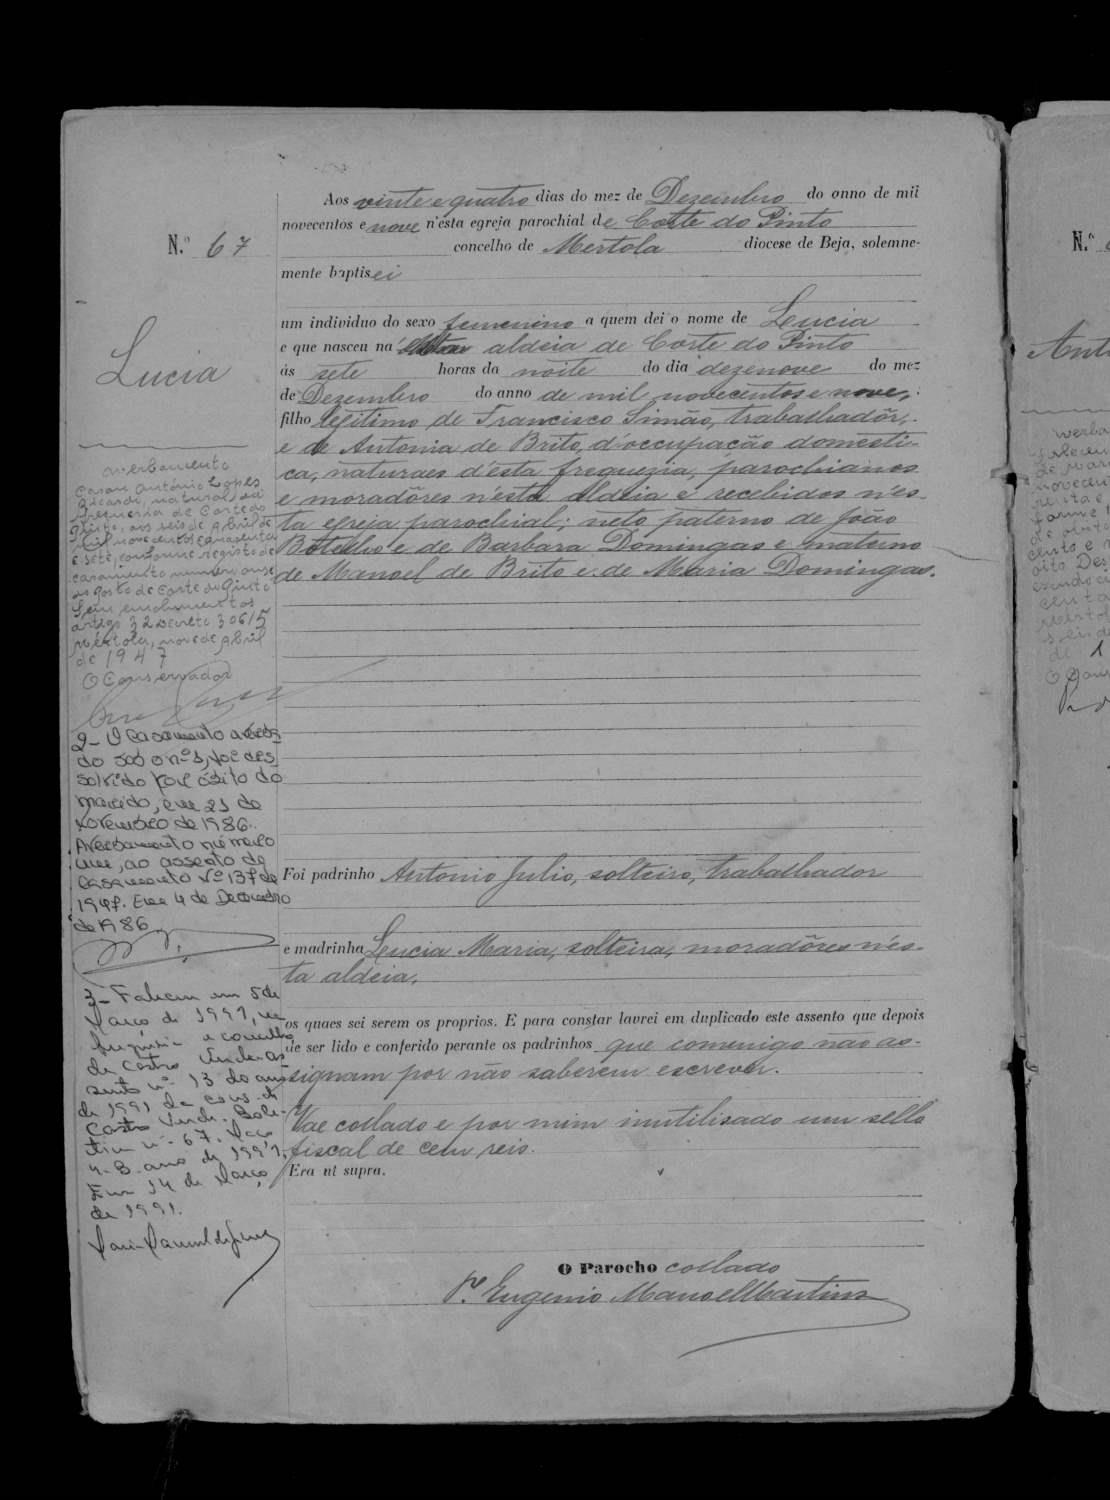 Aos vinte e quatro dias do mez de Dezembro do anno de mil
novecentos e nove n'esta egreja parochial de Corte do Pinto
concelho de Mertola diocese de Beja, solemne-
mente baptisei
N.º 67
Lucia
um individuo do sexo femenino a quem dei o nome de Lucia
e que nasceu na aldeia de Corte do Pinto
ás sete horas da noite do dia dezenove do mez
de Dezembro do anno de mil novecentos e nove,
filho legitimo de Francisco Simão, trabalhadôr,
e de Antonia de Brito, d'occupação domesti-
ca, naturaes d'esta freguezia, parochianos
e moradôres n'esta aldeia e recebidos n'es-
ta egreja parochial; neto paterno de João
Botelho e de Barbara Domingas e materno
de Manoel de Brito e de Maria Domingas.
Foi padrinho Antonio Julio, solteiro, trabalhador
e madrinha Lucia Maria, solteira, moradôres n'es-
ta aldeia,
os quaes sei serem os proprios. E para constar lavrei em duplicado este assento que depois
de ser lido e conferido perante os padrinhos que comenigo não as-
signam por não saberem escrever.
Vae collado e por mim inutilisado um sello
fiscal de cem reis.
Era ut supra.
O Parocho collado
P.e Eugenio Manoel Martins
averbamento
Casou António Lopes
Ricardo, natural da
freguesia de Corte do
Pinto, aos seis de Abril de
mil novecentos e quarenta
e sete, conforme registo de
casamento numero onze
do posto de Corte do Pinto
Sem emolumentos
artigo 32 Decreto 30615
Mértola, nove de Abril
de 1947
O Conservador
2- O Casamento averba-
do sob o nº 1, foi dis-
solvido por óbito do
marido, em 21 de
Novembro de 1986.
Averbamento número
um, ao assento de
Casamento Nº 137 de
1947. Em 4 de Dezembro
de 1986
3- Faleceu em 5 de
Março de 1991, na
freguesia e concelho
de Castro Verde. As-
sento nº 13 do ano
de 1991 da cons. de
Castro Verde. Bole-
tim nº 67. Maço
de 1991.
Em 14 de Março
de 1991.
N.º
Ant